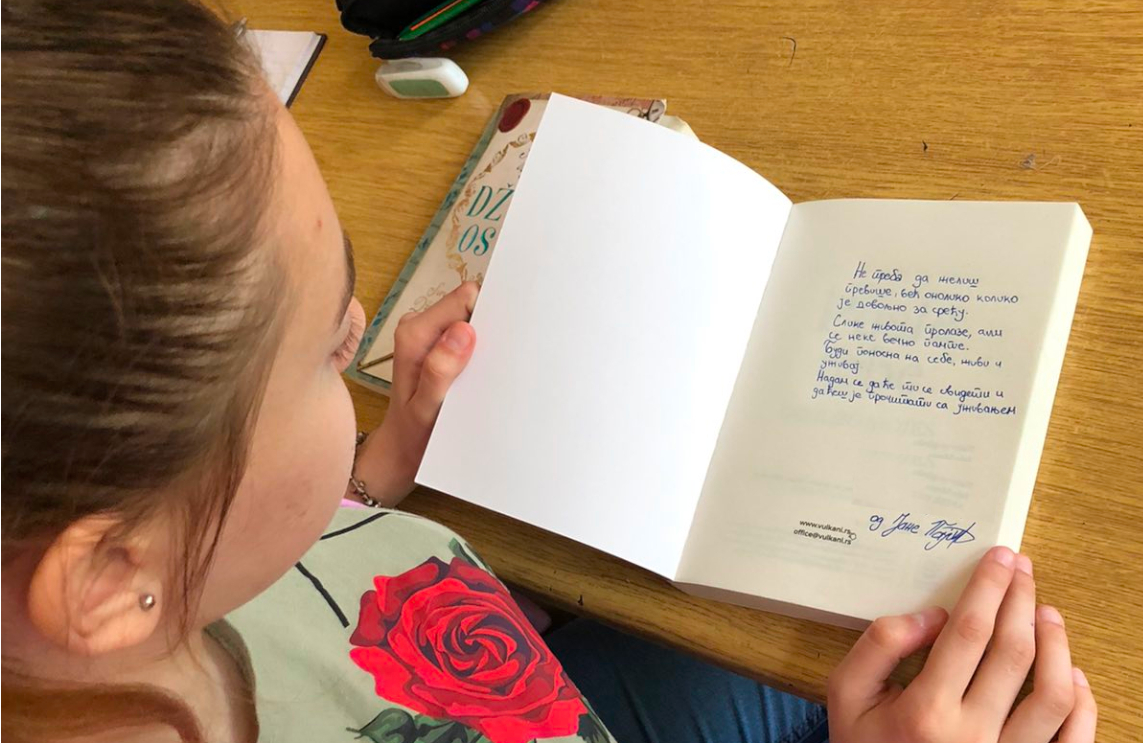 DŽ
OS
Не треба да желиш
превише, већ онолико колико
је довољно за срећу.
Слике живота пролазе, али
се неке вечно памте.
Буди поносна на себе, живи и
уживај.
Надам се да ће ти се свидети и
да ћеш је прочитати са уживањем
од Јане
www.vulkani.rs
office@vulkani.rs